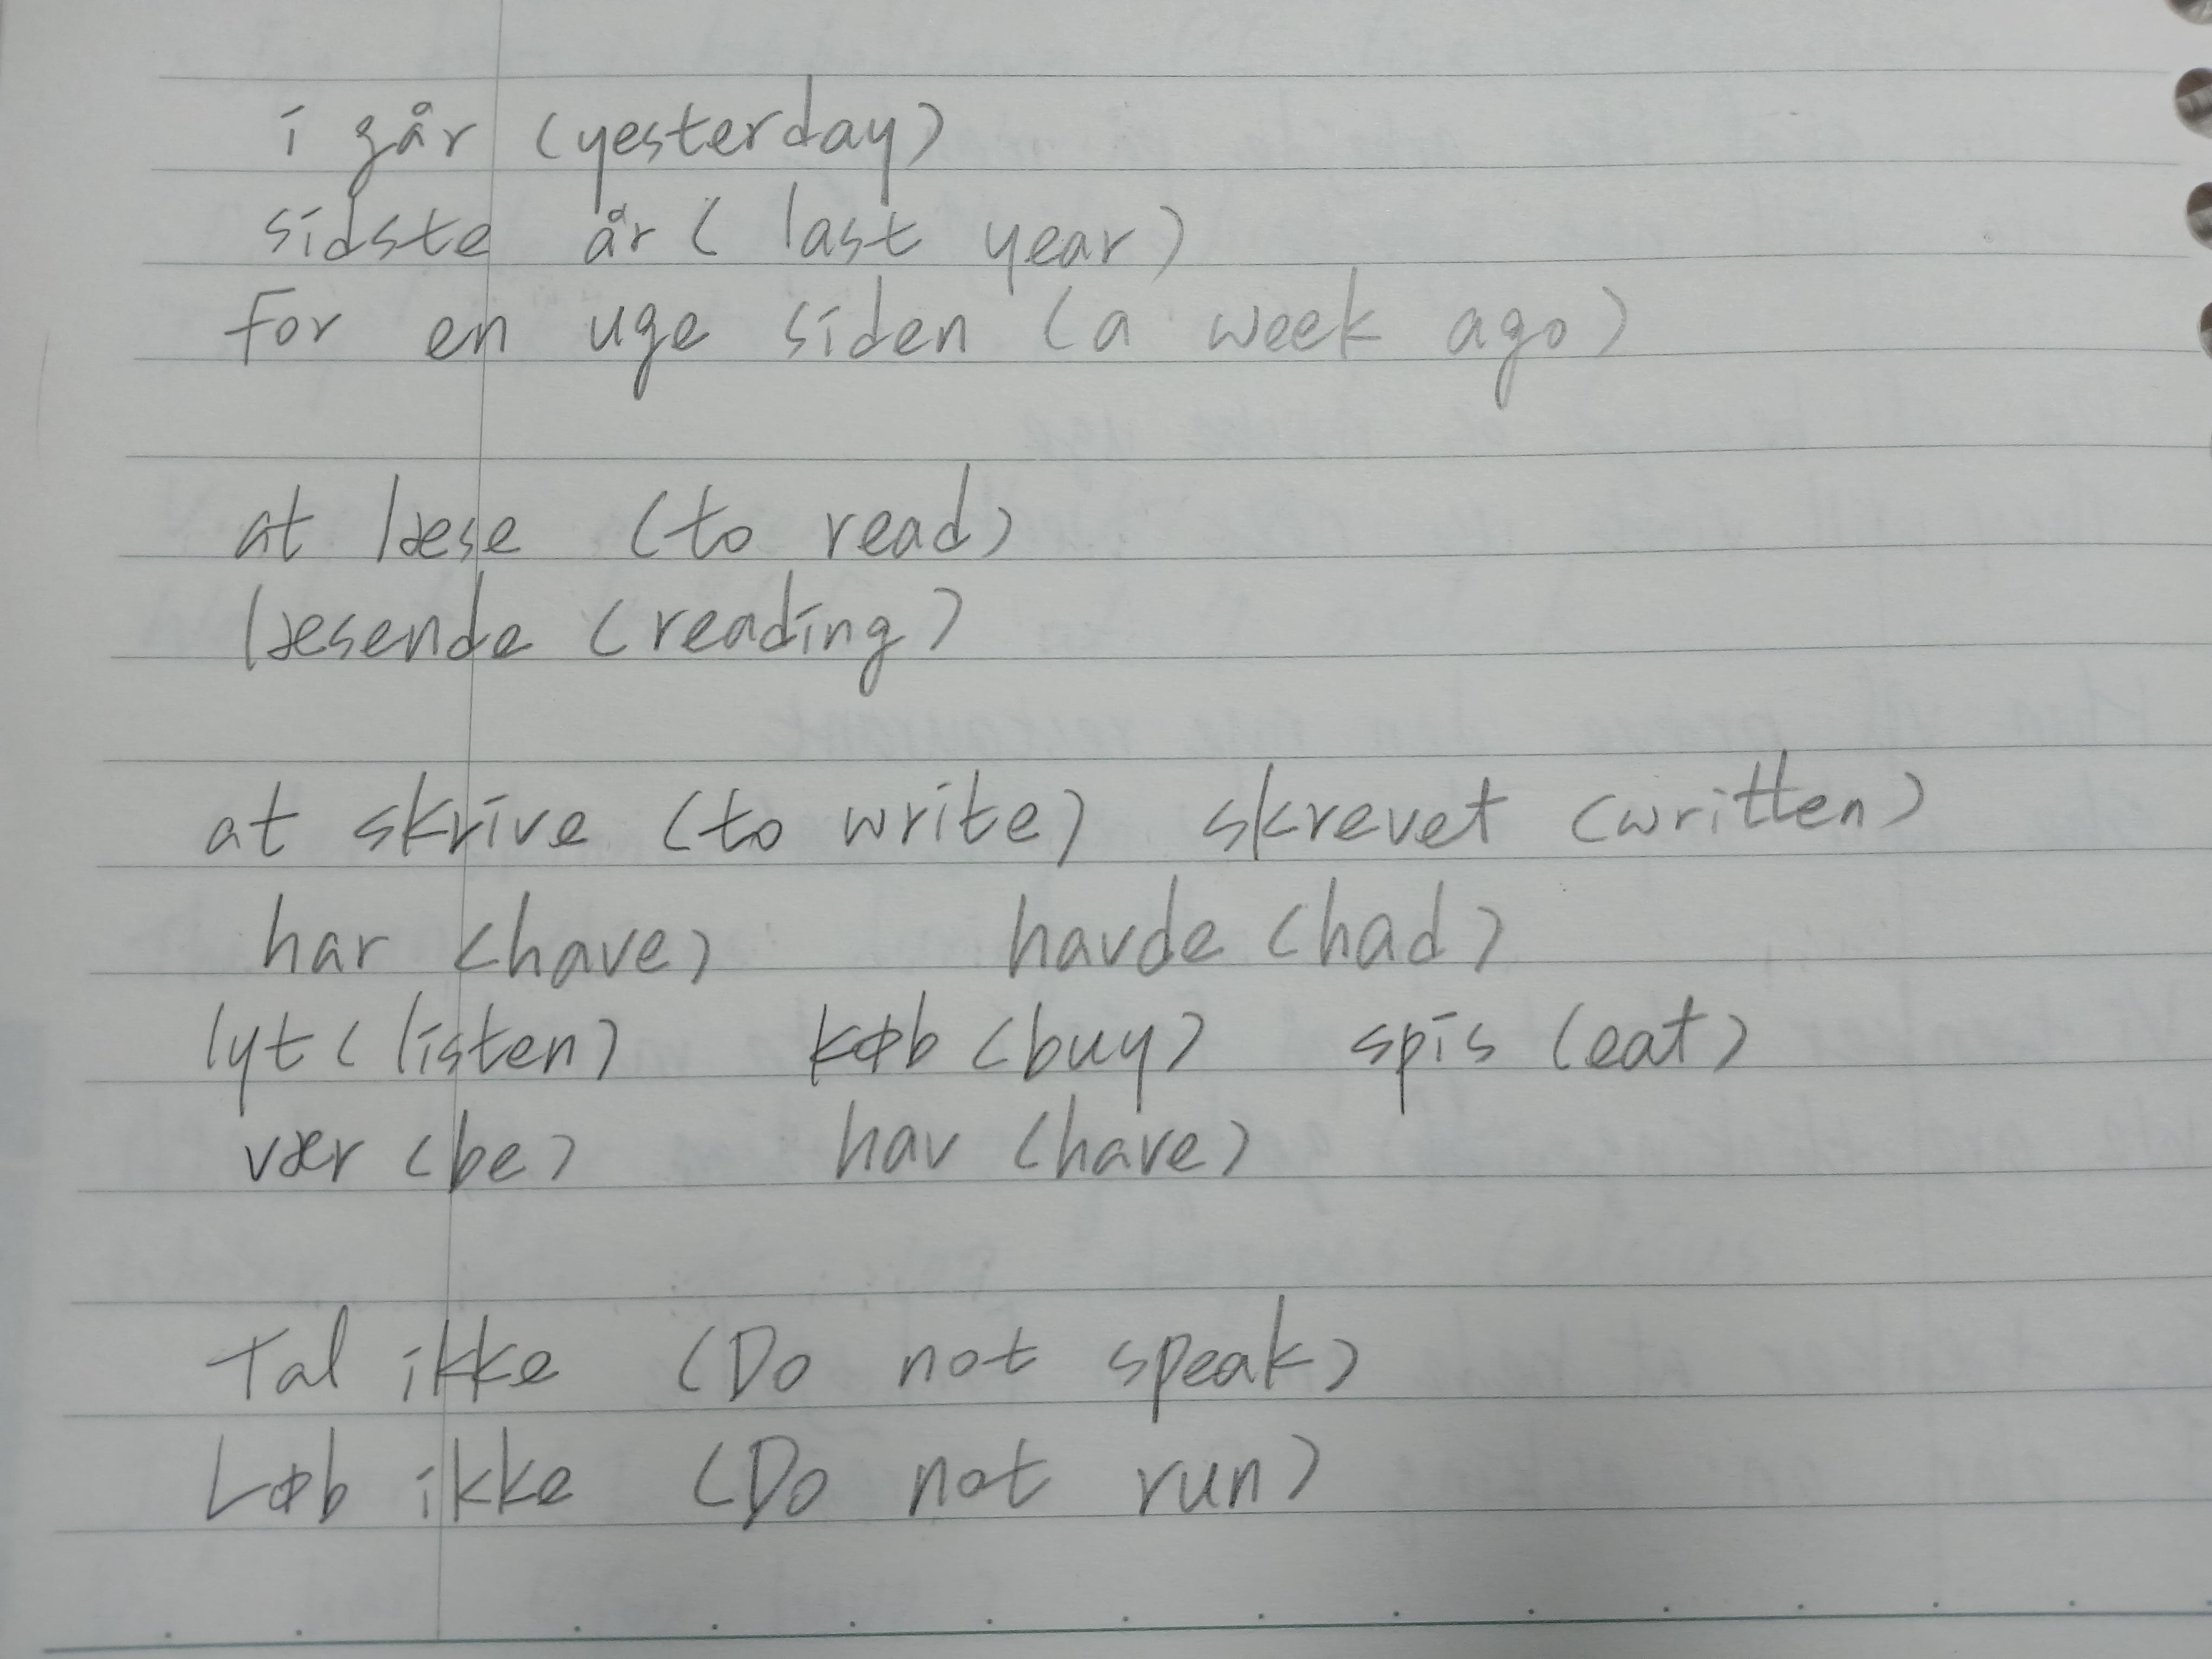 i går (yesterday)
sidste år ( last year)
for en uge siden (a week ago)
at læse (to read)
læsende (reading)
at skrive (to write) skrevet (written)
har (have) havde (had)
lyt ( listen) køb (buy) spis (eat)
vær (be) hav (have)
Tal ikke (Do not speak)
Løb ikke (Do not run)